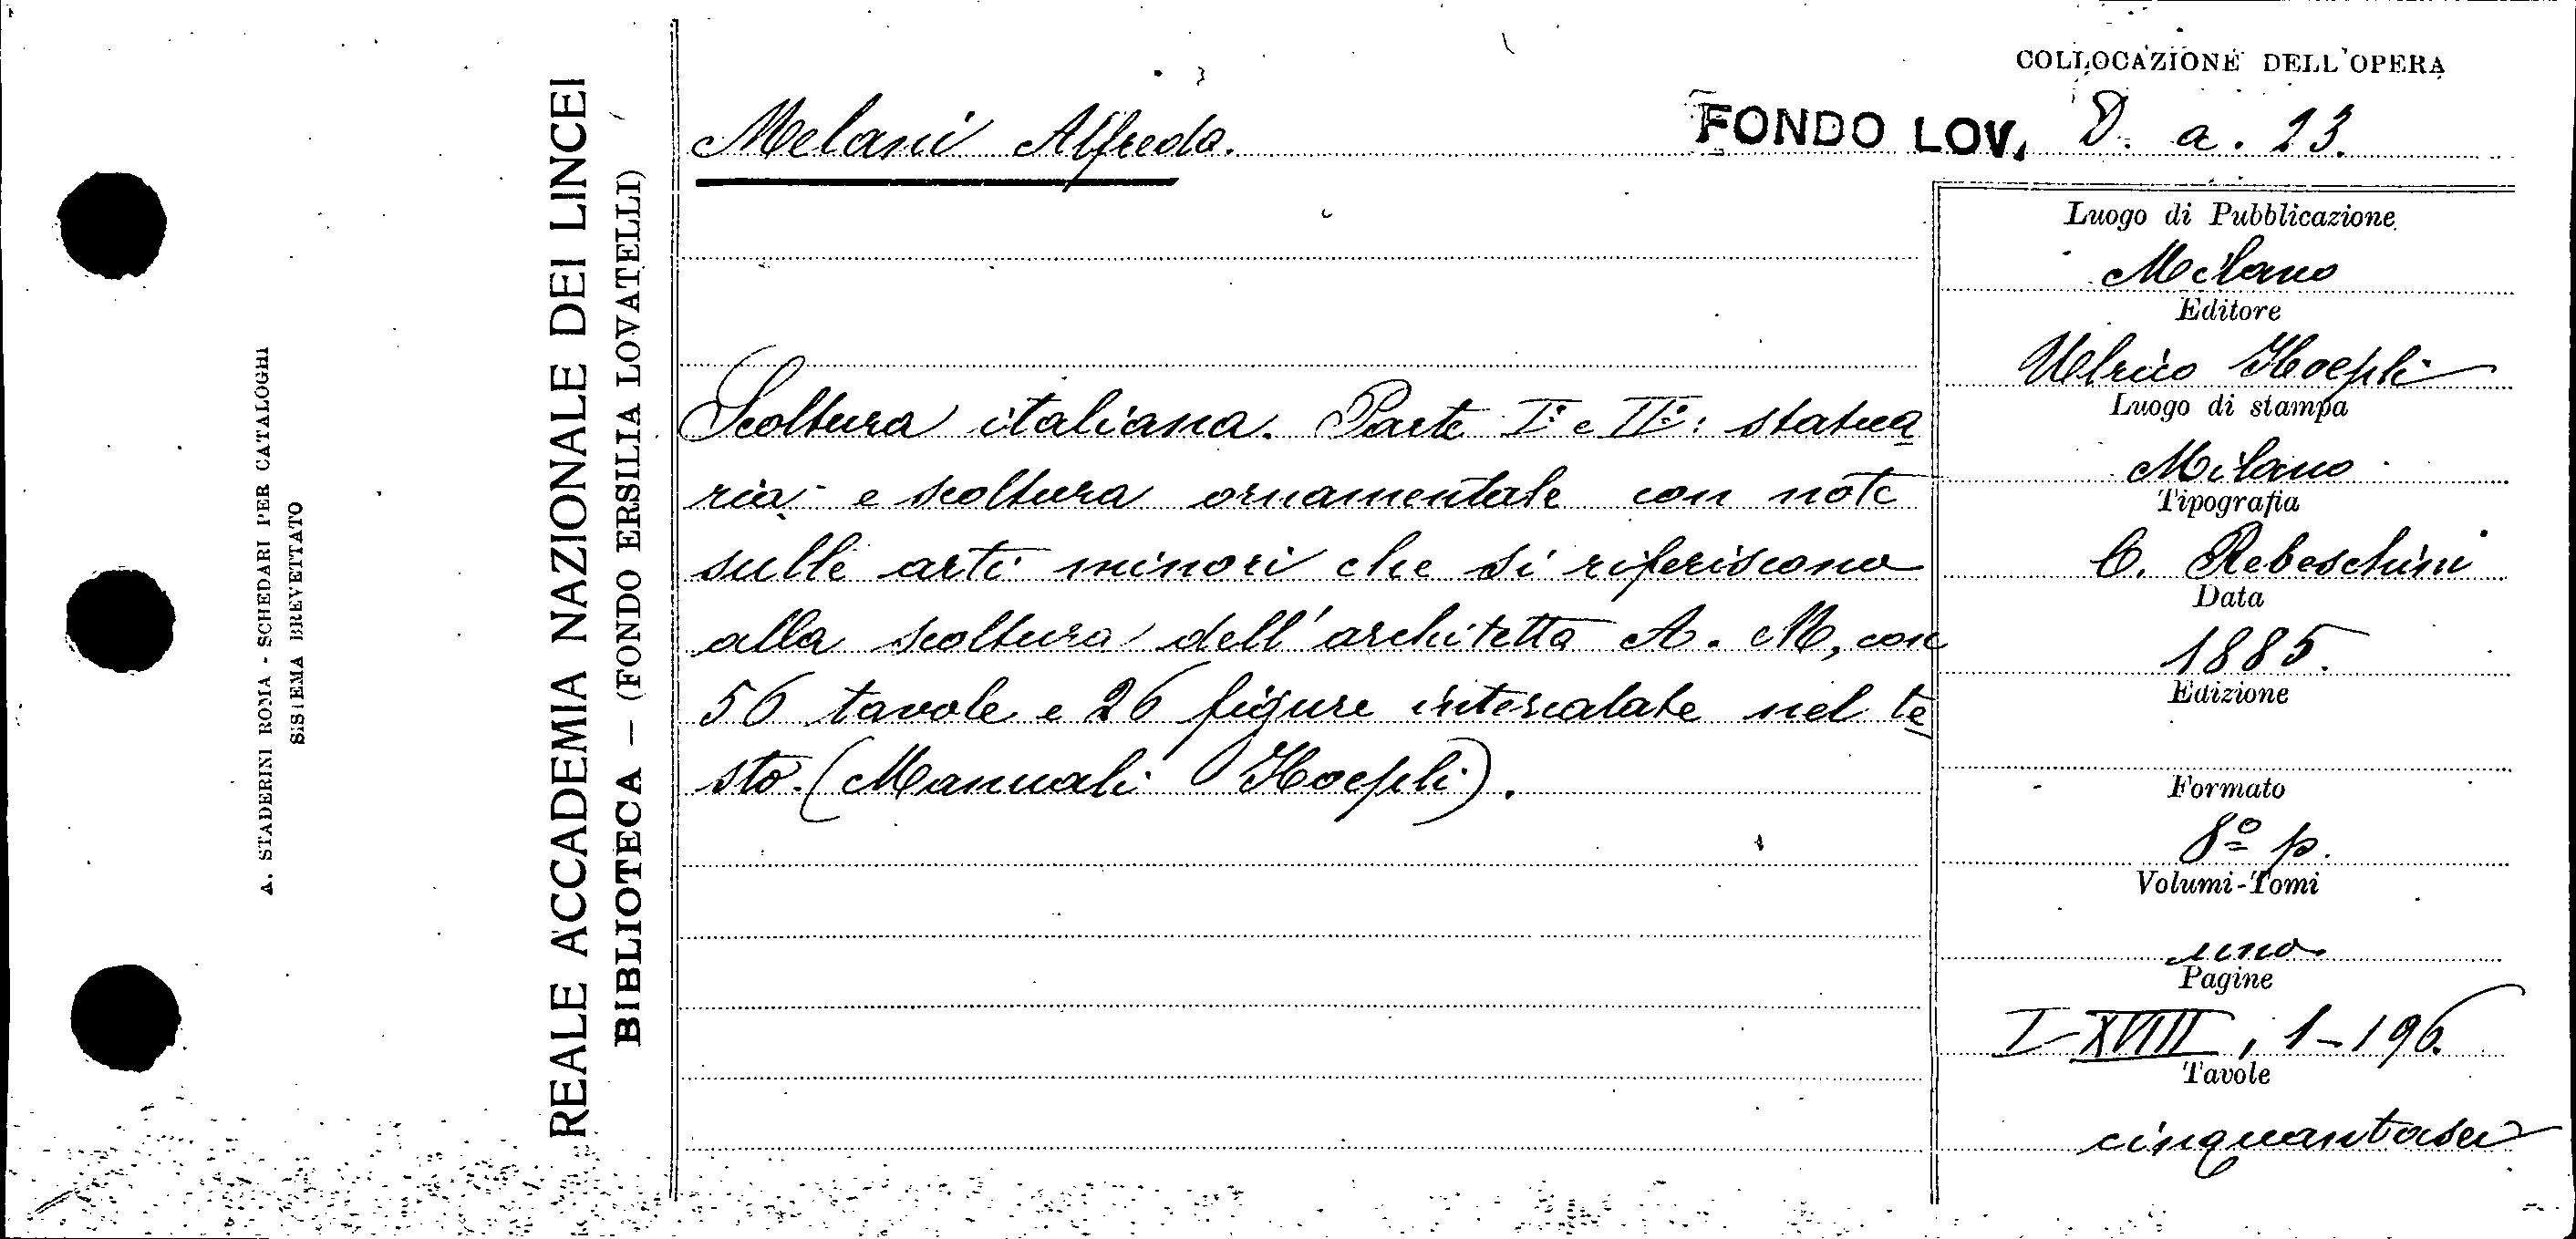 COLLOCAZIONE DELL'OPERA
Melani Alfredo.
FONDO LOV. D. a. 23.
REALE ACCADEMIA NAZIONALE DEI LINCEI
BIBLIOTECA — (FONDO ERSILIA LOVATELLI)
A. STADERINI ROMA - SCHEDARI PER CATALOGHI
SISTEMA BREVETTATO
Scoltura italiana. Parte Iª e IIª: statua
ria e scoltura ornamentale con note
sulle arti minori che si riferiscono
alla scoltura dell'architetto A. M., con
56 tavole e 26 figure intercalate nel te
sto. (Manuali Hoepli).
Luogo di Pubblicazione
Milano
Editore
Ulrico Hoepli
Luogo di stampa
Milano
Tipografia
C. Rebeschini
Data
1885.
Edizione
Formato
8º p.
Volumi-Tomi
uno
Pagine
I-XVIII, 1-196.
Tavole
cinquantasei